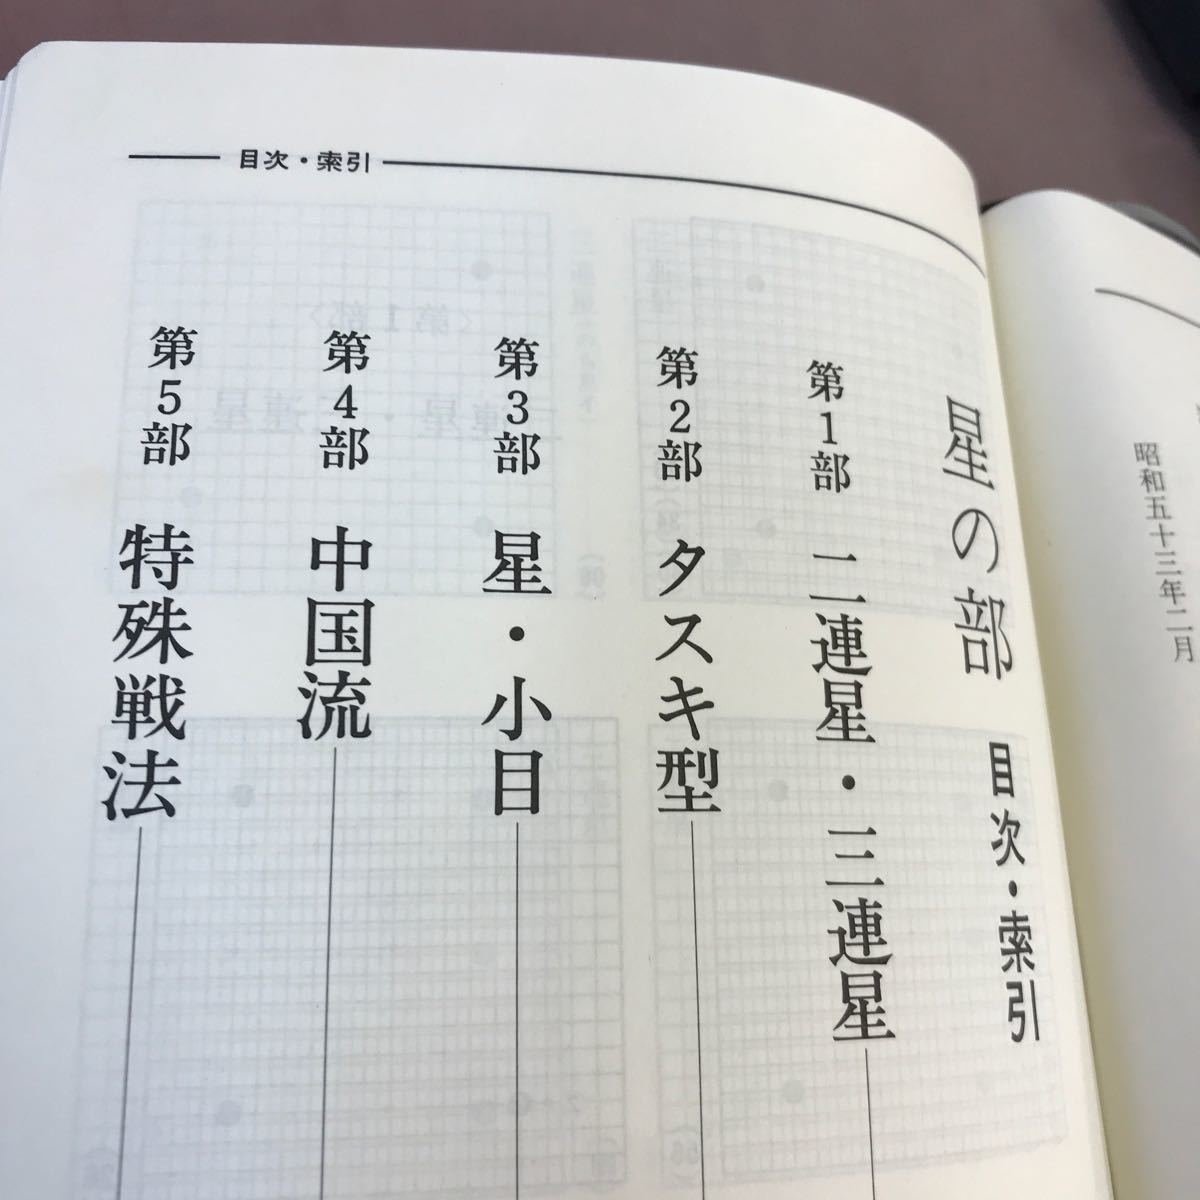 目次・索引
昭和五十三年二月
星の部 目次・索引
第1部 二連星・三連星
第2部 タスキ型
第3部 星・小目
第4部 中国流
第5部 特殊戦法